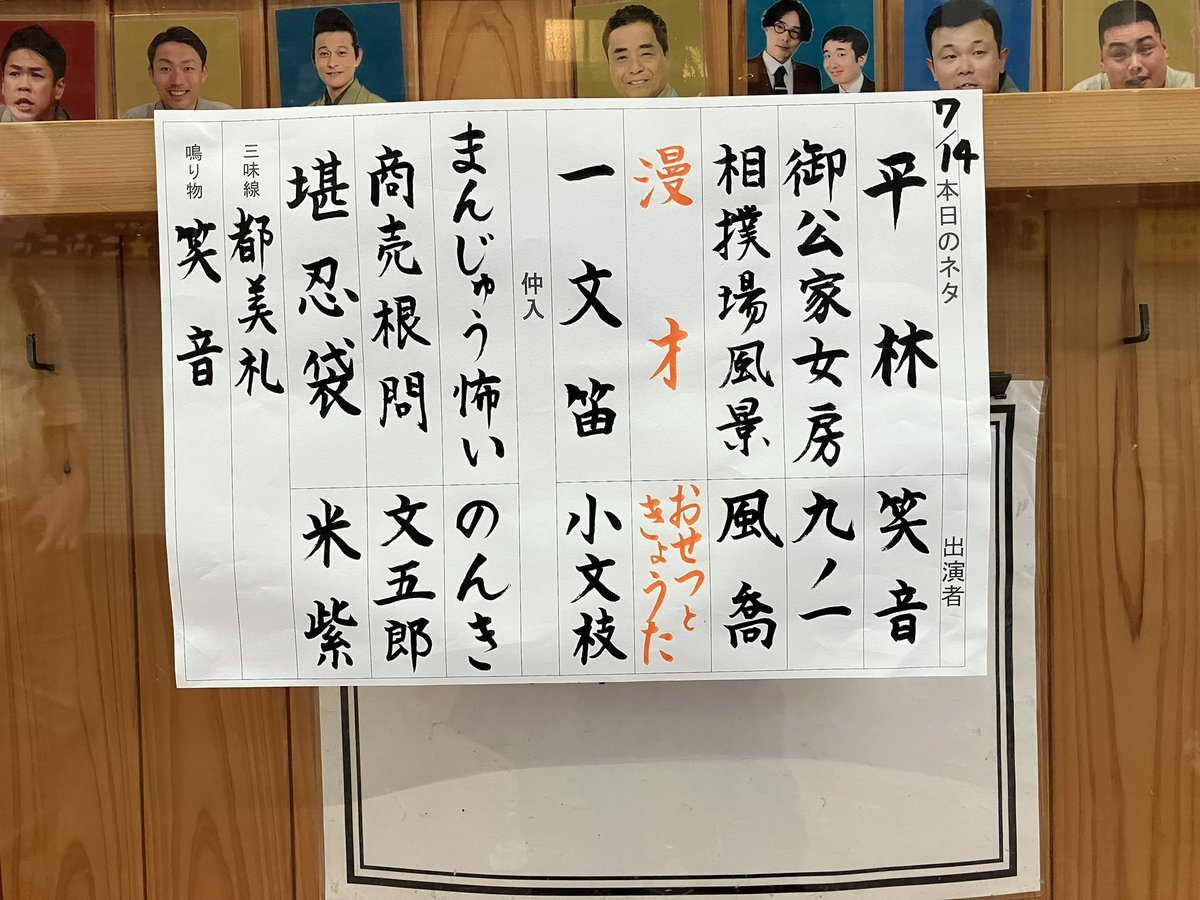 7/14 本日のネタ 出演者
平林 笑音
御公家女房 九ノ一
相撲場風景 風喬
漫才 おせつときょうた
一文笛 小文枝
仲入
まんじゅう怖い のんき
商売根問 文五郎
堪忍袋 米紫
三味線 都美礼
鳴り物 笑音